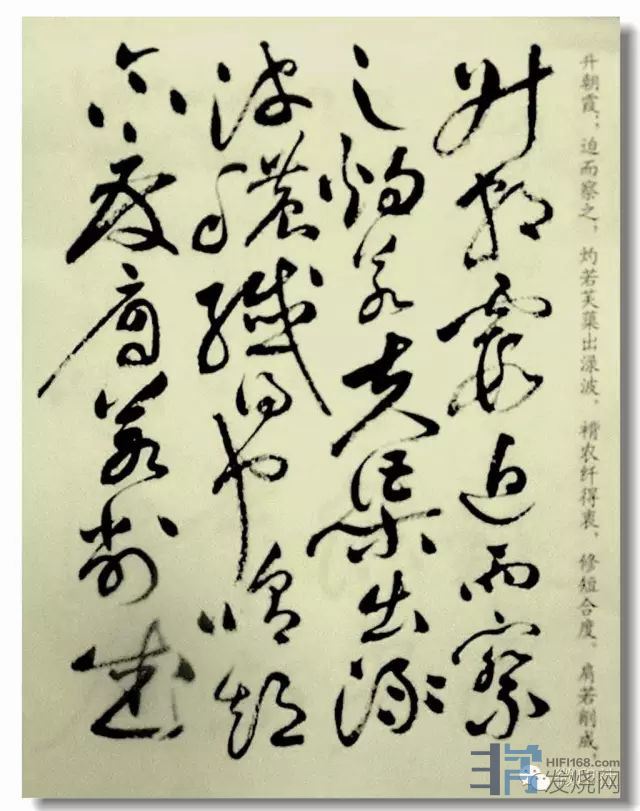 升朝霞；迫而察之，灼若芙蕖出渌波，农纤得衷，修短合度，肩若削成，
升朝霞迫而察
之灼若芙蕖出渌
波穠纖得中脩短
合度肩若削成
HIFI168.com
发烧网